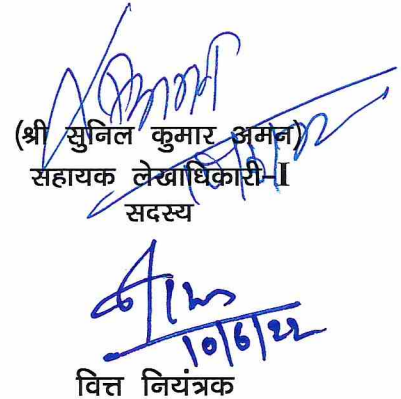 (श्री सुनिल कुमार अमन)
सहायक लेखाधिकारी-I
सदस्य
10/6/22
वित्त नियंत्रक